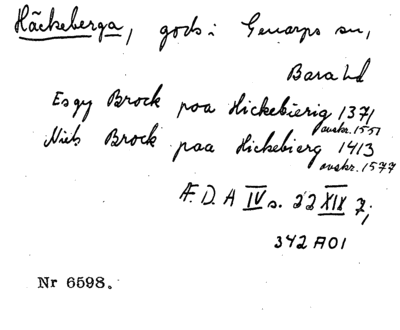 Häckeberga, gods i Genarps sn,
Bara hd
Esgy Brock poa Hickebierig 1371
avskr. 1551
Niels Brock paa Hickebierg 1413
avskr. 1577
Æ. D. A IV s. 22 XIX 7;
342 A01
Nr 6598.